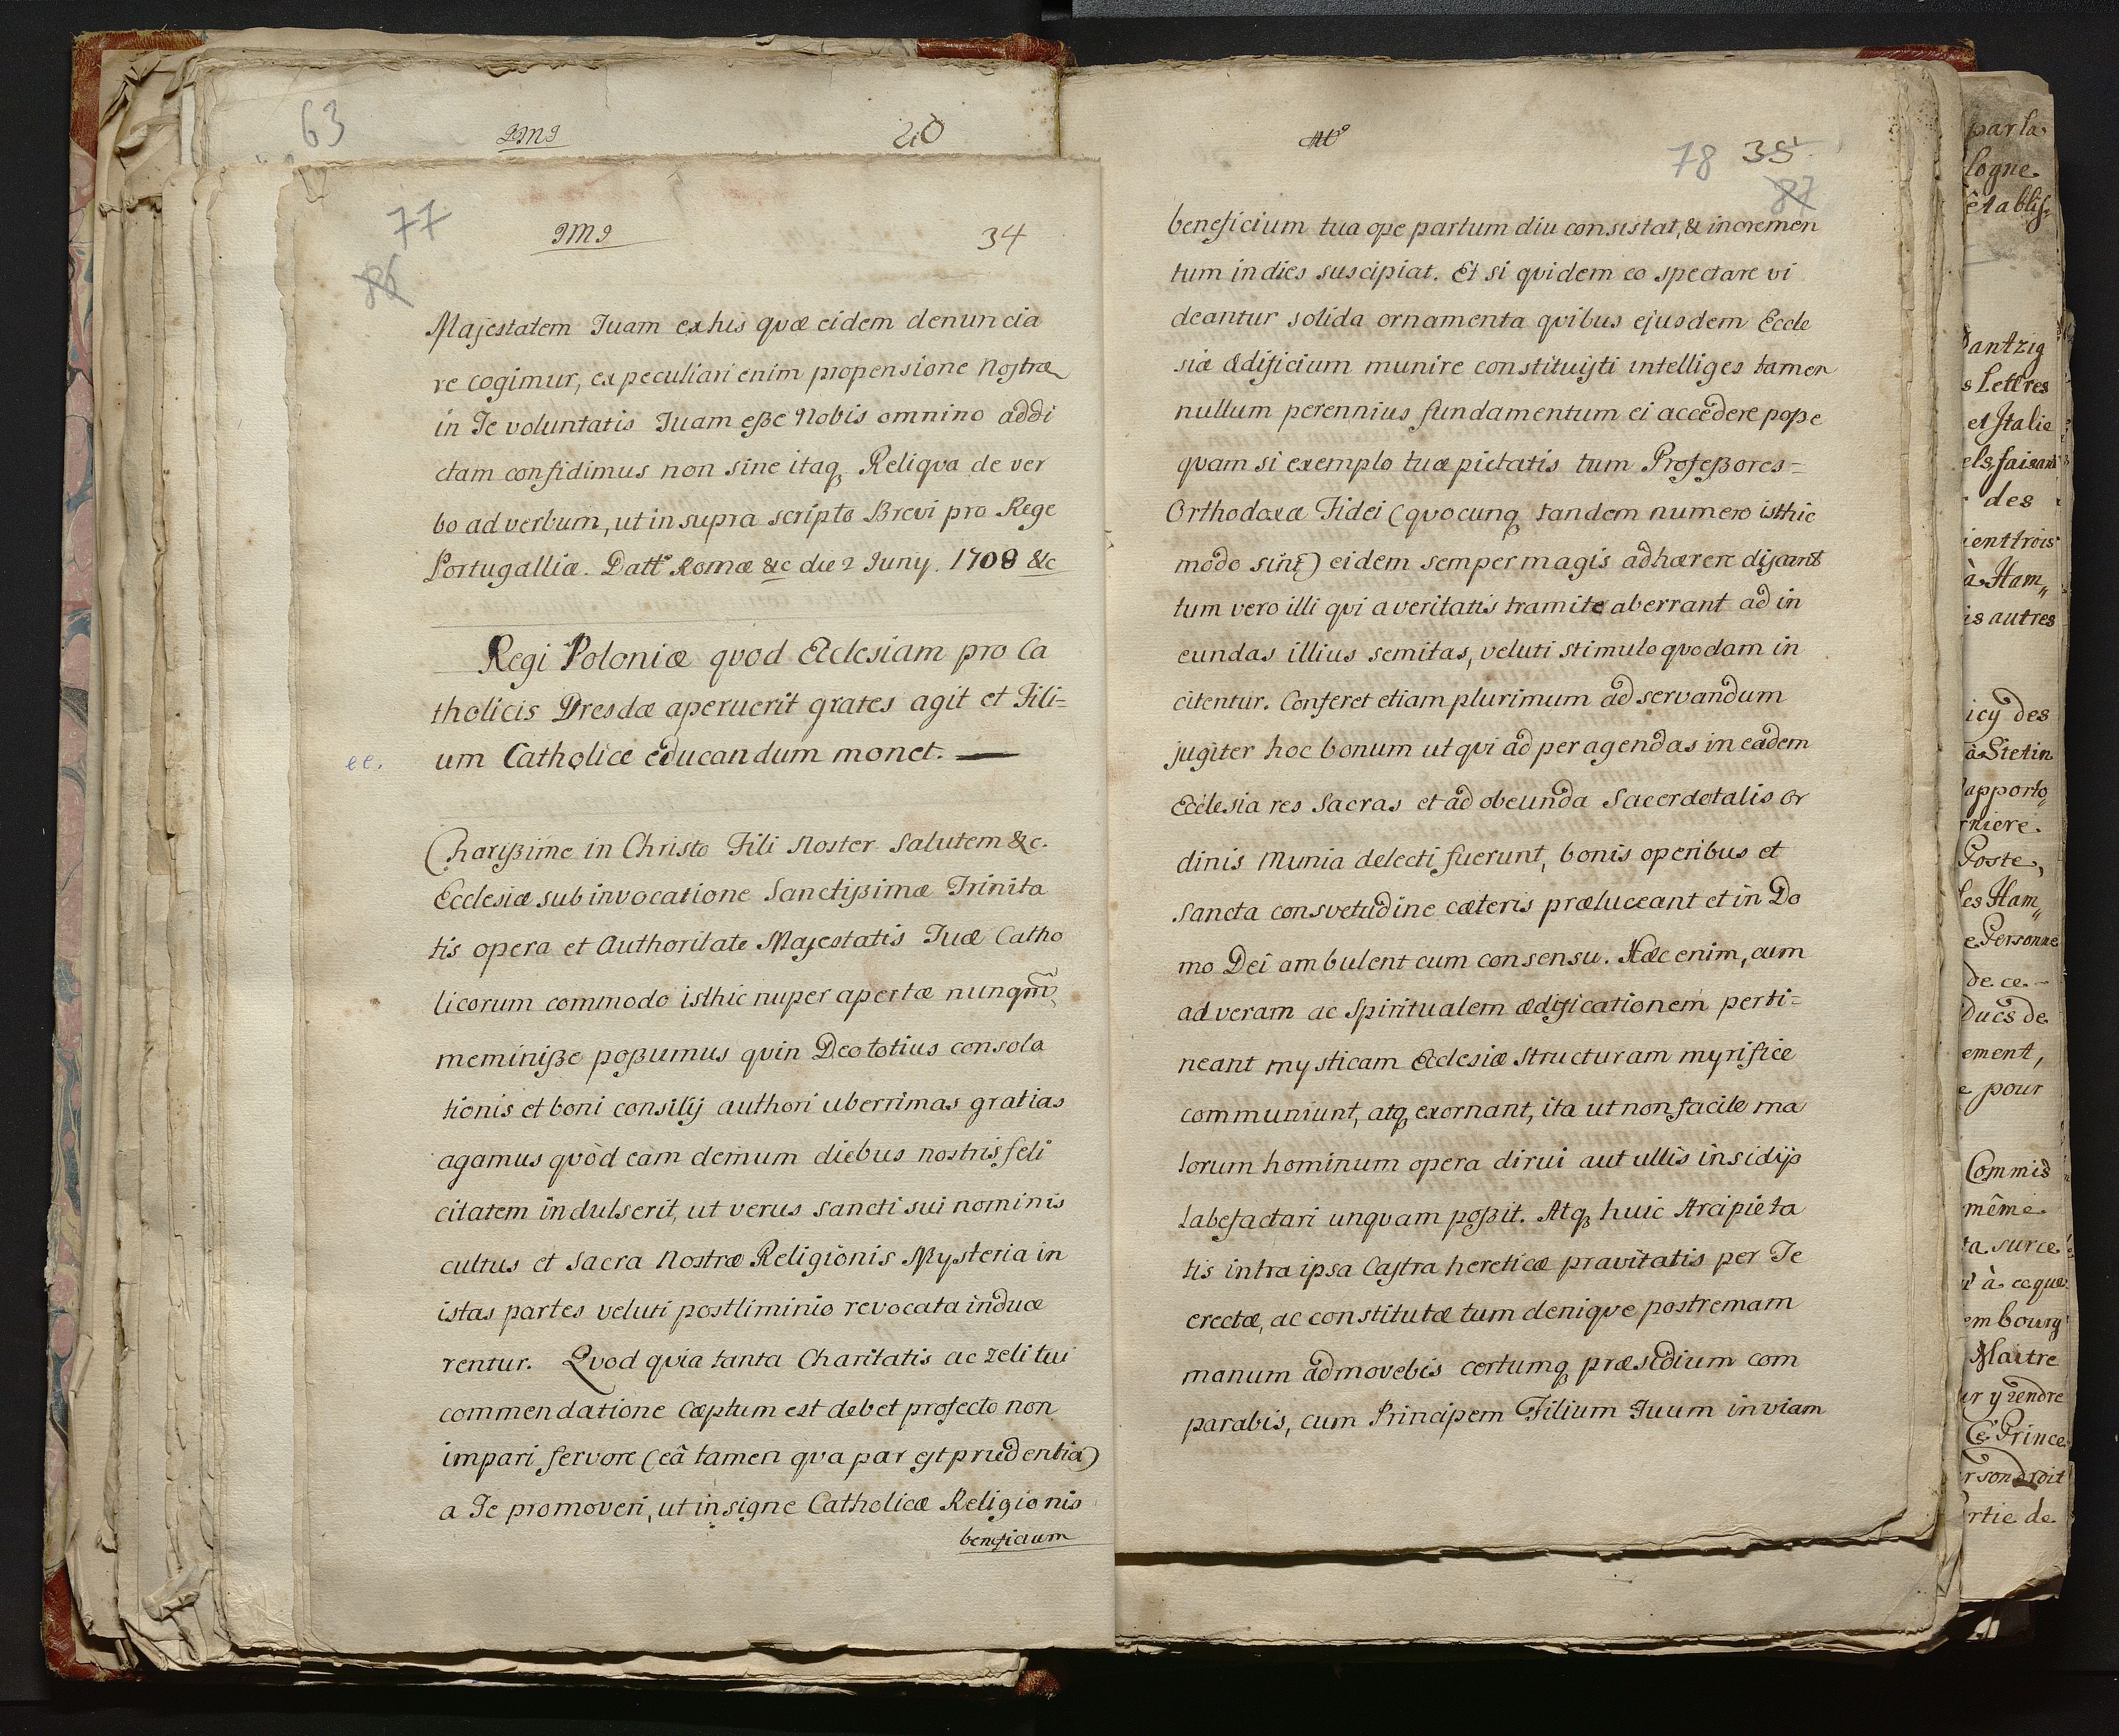 63
JMJ
20
77
86
JMJ
34
Majestatem Tuam ex his quæ eidem denuncia
re cogimur, ex peculiari enim propensione Nostræ
in Te voluntatis Tuam eße Nobis omnino addi
ctam confidimus non sine itaq Reliqva de ver
bo ad verbum, ut in supra scripto Brevi pro Rege
Portugalliæ. Datt Romæ &c die 2 Juny. 1708 &c
Regi Poloniæ qvod Ecclesiam pro Ca
tholicis Dresdæ aperuerit grates agit et Fili=
ee.
um Catholice educandum monet. —
Charißime in Christo Fili Noster Salutem &c.
Ecclesiæ sub invocatione Sanctißimæ Trinita
tis opera et Authoritate Majestatis Tuæ Catho
licorum commodo isthic nuper apertæ nunqm̃
meminiße poßumus qvin Deo totius consola
tionis et boni consilij authori uberrimas gratias
agamus qvòd eam demum diebus nostris feli
citatem indulserit, ut verus sancti sui nominis
cultus et sacra Nostræ Religionis Mysteria in
istas partes veluti postliminio revocata induce
rentur. Qvod qvia tanta Charitatis ac zeli tui
commendatione cæptum est debet profecto non
impari fervore (eâ tamen qva par est prudentia)
a Te promoveri, ut insigne Catholicæ Religionis
beneficium
78
35
87
beneficium tua ope partum diu consistat, & incremen
tum indies suscipiat. Et si qvidem eo spectare vi
deantur solida ornamenta qvibus ejusdem Eccle
siæ ædificium munire constituisti intelliges tamen
nullum perennius fundamentum ei accedere poße
quam si exemplo tuæ pietatis tum Profeßores=
Orthodoxæ Fidei (qvocunq tandem numero isthic
modo sint) eidem semper magis adhærere discant
tum vero illi qvi a veritatis tramite aberrant ad in
eundas illius semitas, veluti stimulo qvodam in
citentur. Conferet etiam plurimum ad servandum
jugiter hoc bonum ut qvi ad peragendas in eadem
Ecclesia res Sacras et ad obeunda Sacerdotalis Or
dinis Munia delecti fuerunt, bonis operibus et
Sancta consvetudine cæteris præluceant et in Do
mo Dei ambulent cum consensu. Hæc enim, cum
ad veram ac Spiritualem ædificationem perti=
neant mysticam Ecclesiæ structuram myrifice
communiunt, atq exornant, ita ut non facile ma
lorum hominum opera dirui aut ullis insidijs
labefactari unqvam poßit. Atq huic Arci pieta
tis intra ipsa Castra hereticæ pravitatis per Te
erectæ, ac constitutæ tum deniqve postremam
manum admovebis certumq præsidium com
parabis, cum Principem Filium Tuum in viam
par la
logne
établis=
Dantzig
s Lettres
et Italie
els, faisant
des
ient trois
à Ham„
is autres
icy des
à Stetin
apporto„
rniere.
Poste,
les Ham„
e Personne
de ce
Ducs de
ement,
e pour
Commis
même
ta surce
à ce que
embourg
Maitre
ur y rendre
Ce Prince
r son droit
rtie de